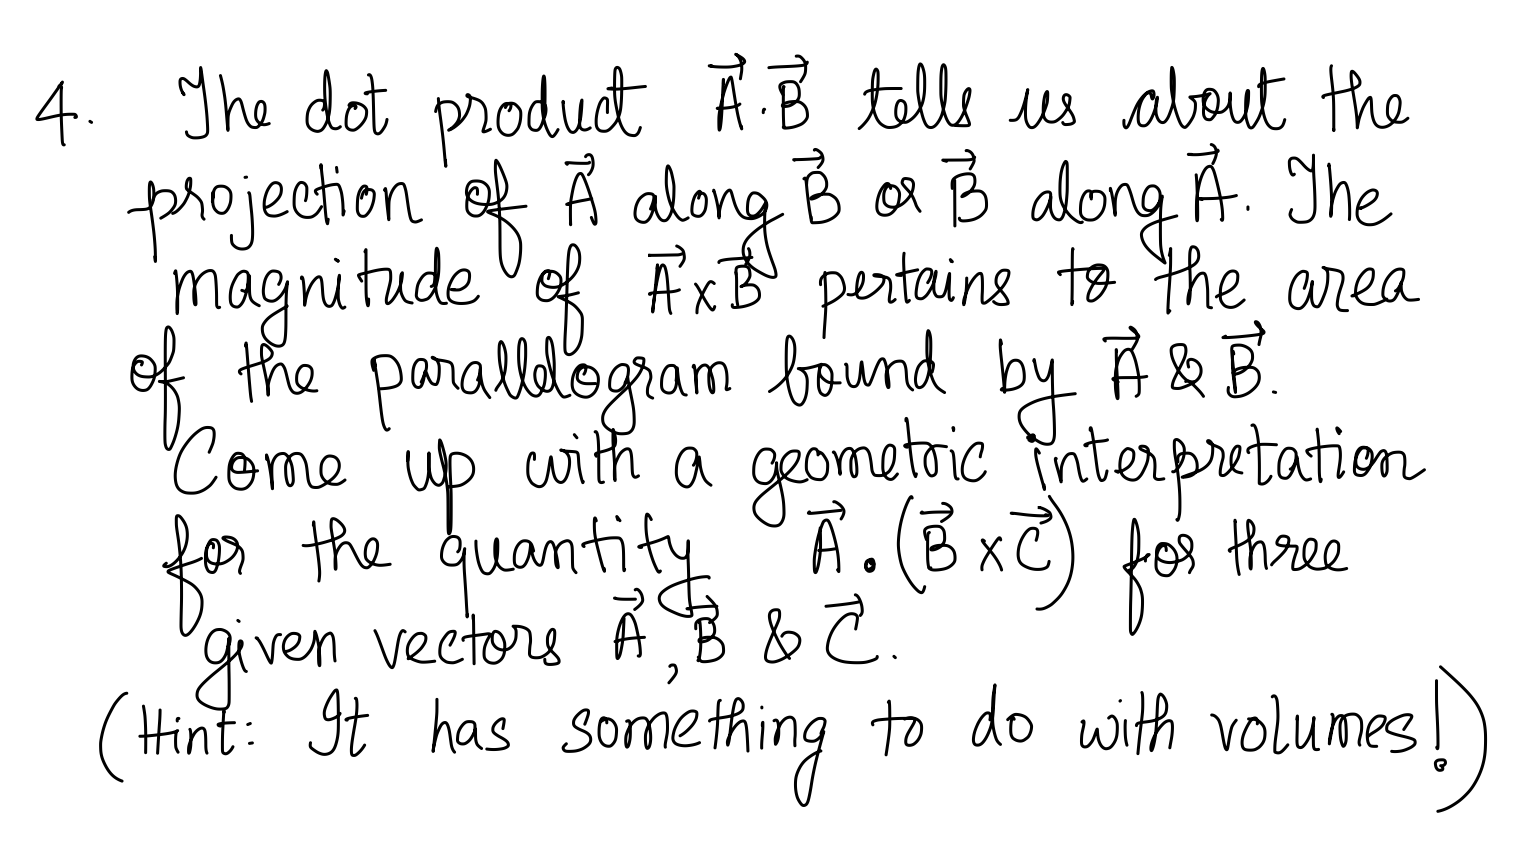 4. The dot product A⃗.B⃗ tells us about the
projection of A⃗ along B⃗ or B⃗ along A⃗. The
magnitude of A⃗xB⃗ pertains to the area
of the parallelogram bound by A⃗ & B⃗.
Come up with a geometric interpretation
for the quantity A⃗.(B⃗xC⃗) for three
given vectors A⃗, B⃗ & C⃗.
(Hint: It has something to do with volumes!)